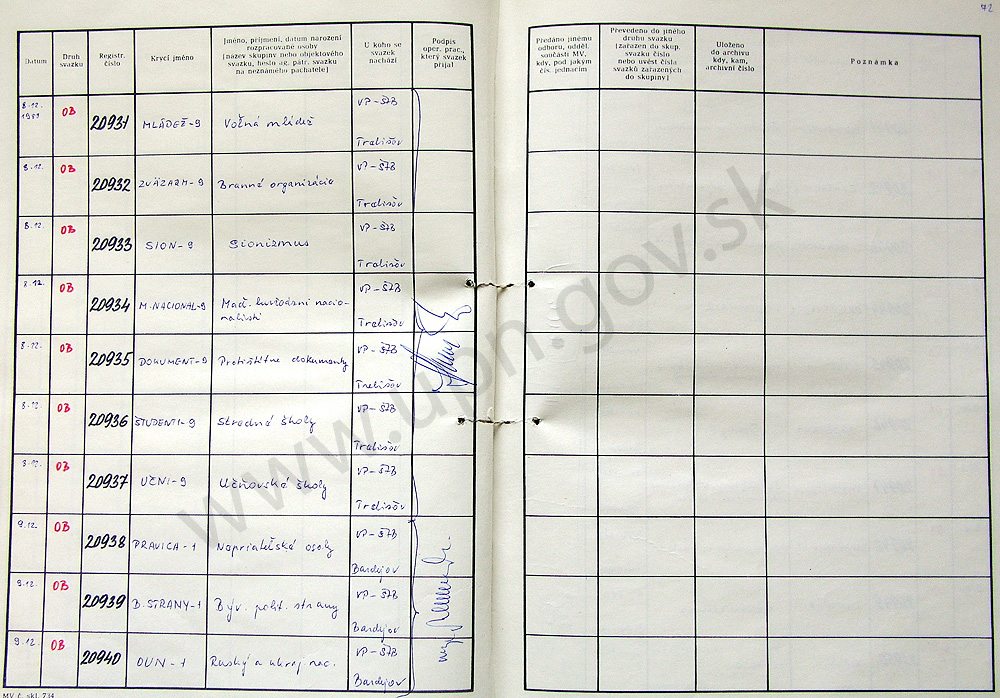 72
Datum
Druh
svazku
Registr.
číslo
Krycí jméno
Jméno, příjmení, datum narození
rozpracované osoby
[název skupiny nebo objektového
svazku, heslo ag. pátr. svazku
na neznámého pachatele]
U koho se
svazek
nachází
Podpis
oper. prac.,
který svazek
přijal
Předáno jinému
odboru, odděl.
součásti MV,
kdy, pod jakým
čís. jednacím
Převedeno do jiného
druhu svazku
[zařazen do skup.
svazku číslo
nebo uvést čísla
svazků zařazených
do skupiny]
Uloženo
do archivu
kdy, kam,
archivní číslo
Poznámka
8.12.
1981
OB
20931
MLÁDEŽ-9
Voľná mládež
VP-ŠTB
Trebišov
8.12.
OB
20932
ZVÄZARM-9
Branná organizácia
VP-ŠTB
Trebišov
8.12.
OB
20933
SION-9
Sionizmus
VP-ŠTB
Trebišov
8.12.
OB
20934
M.NACIONAL-9
Maď. buržoázni nacio-
nalisti
VP-ŠTB
Trebišov
8.12.
OB
20935
DOKUMENT-9
Protištátne dokumenty
VP-ŠTB
Trebišov
8.12.
OB
20936
ŠTUDENTI-9
Stredné školy
VP-ŠTB
Trebišov
8.12.
OB
20937
UČNI-9
Učňovské školy
VP-ŠTB
Trebišov
9.12.
OB
20938
PRAVICA-1
Nepriateľské osoby
VP-ŠTB
Bardejov
9.12.
OB
20939
B.STRANY-1
Býv. polit. strany
VP-ŠTB
Bardejov
9.12.
OB
20940
OUN-1
Ruský a ukraj. nac.
VP-ŠTB
Bardejov
MV č. skl. 734
www.upn.gov.sk